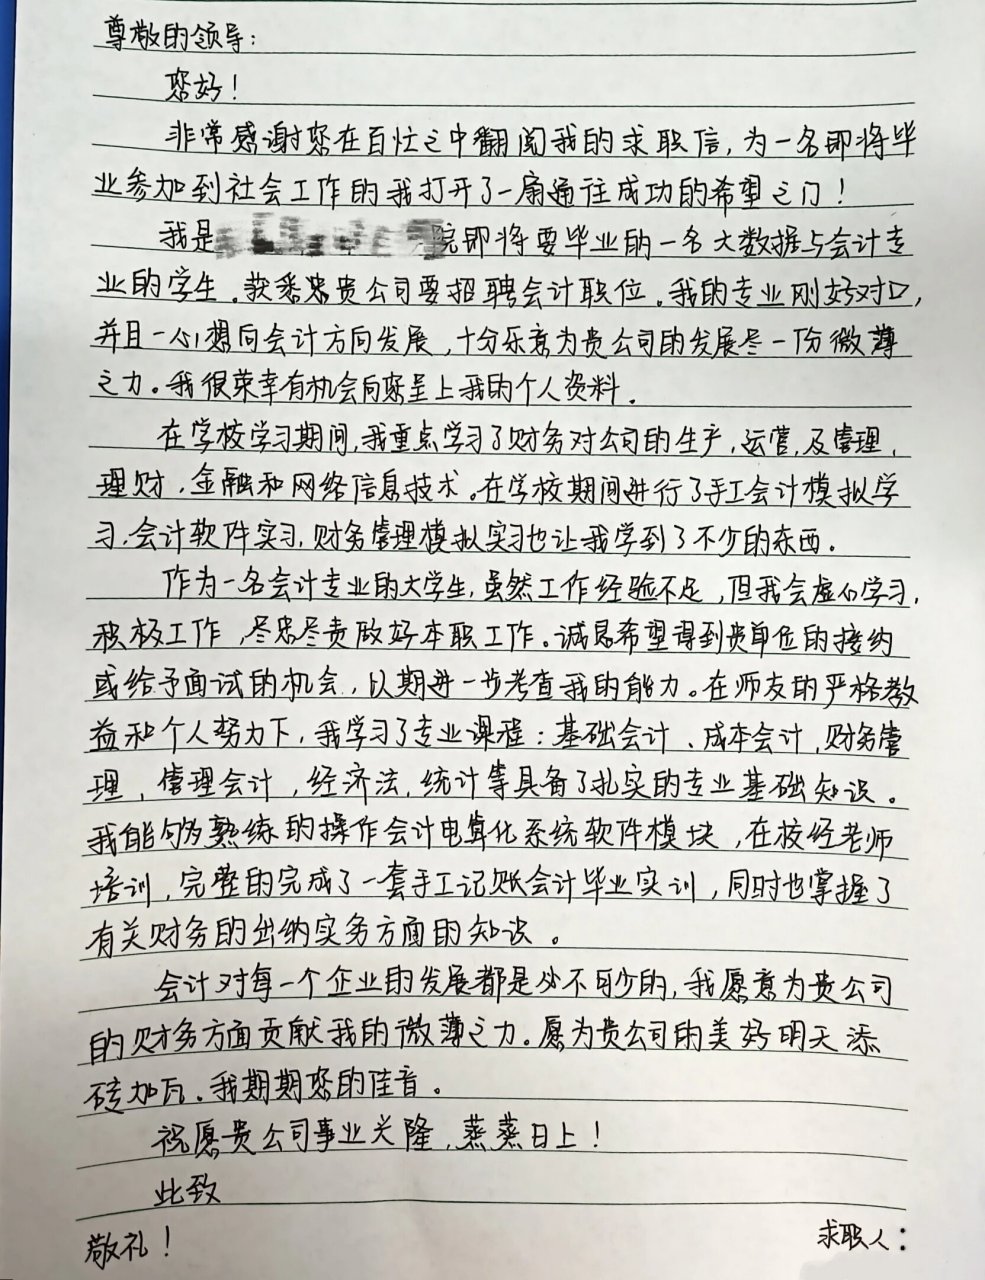 尊敬的领导：
您好！
非常感谢您在百忙之中翻阅我的求职信，为一名即将毕
业参加到社会工作的我打开了一扇通往成功的希望之门！
我是 院即将要毕业的一名大数据与会计专
业的学生。获悉贵公司要招聘会计职位。我的专业刚好对口，
并且一心想向会计方向发展，十分乐意为贵公司的发展尽一份微薄
之力。我很荣幸有机会向您呈上我的个人资料。
在学校学习期间，我重点学习了财务对公司的生产，运营，及管理，
理财，金融和网络信息技术。在学校期间进行了手工会计模拟学
习，会计软件实习，财务管理模拟实习也让我学到了不少的东西。
作为一名会计专业的大学生，虽然工作经验不足，但我会虚心学习，
积极工作，尽忠尽责做好本职工作。诚恳希望得到贵单位的接约
或给予面试的机会，以期进一步考查我的能力。在师友的严格教
益和个人努力下，我学习了专业课程：基础会计、成本会计，财务管
理，管理会计，经济法，统计等具备了扎实的专业基础知识。
我能够熟练的操作会计电算化系统软件模块，在校经老师
培训，完整的完成了一套手工记账会计毕业实训，同时也掌握了
有关财务的出纳实务方面的知识。
会计对每一个企业的发展都是必不可少的，我愿意为贵公司
的财务方面贡献我的微薄之力。愿为贵公司的美好明天添
砖加瓦。我期期您的佳音。
祝愿贵公司事业兴隆，蒸蒸日上！
此致
敬礼！ 求职人：